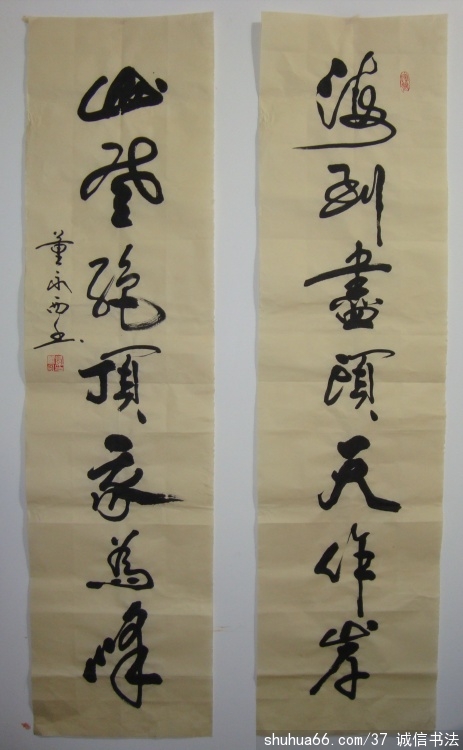 海到盡頭天作岸
山登絕頂我為峰
董永西書
shuhua66.com/37 诚信书法